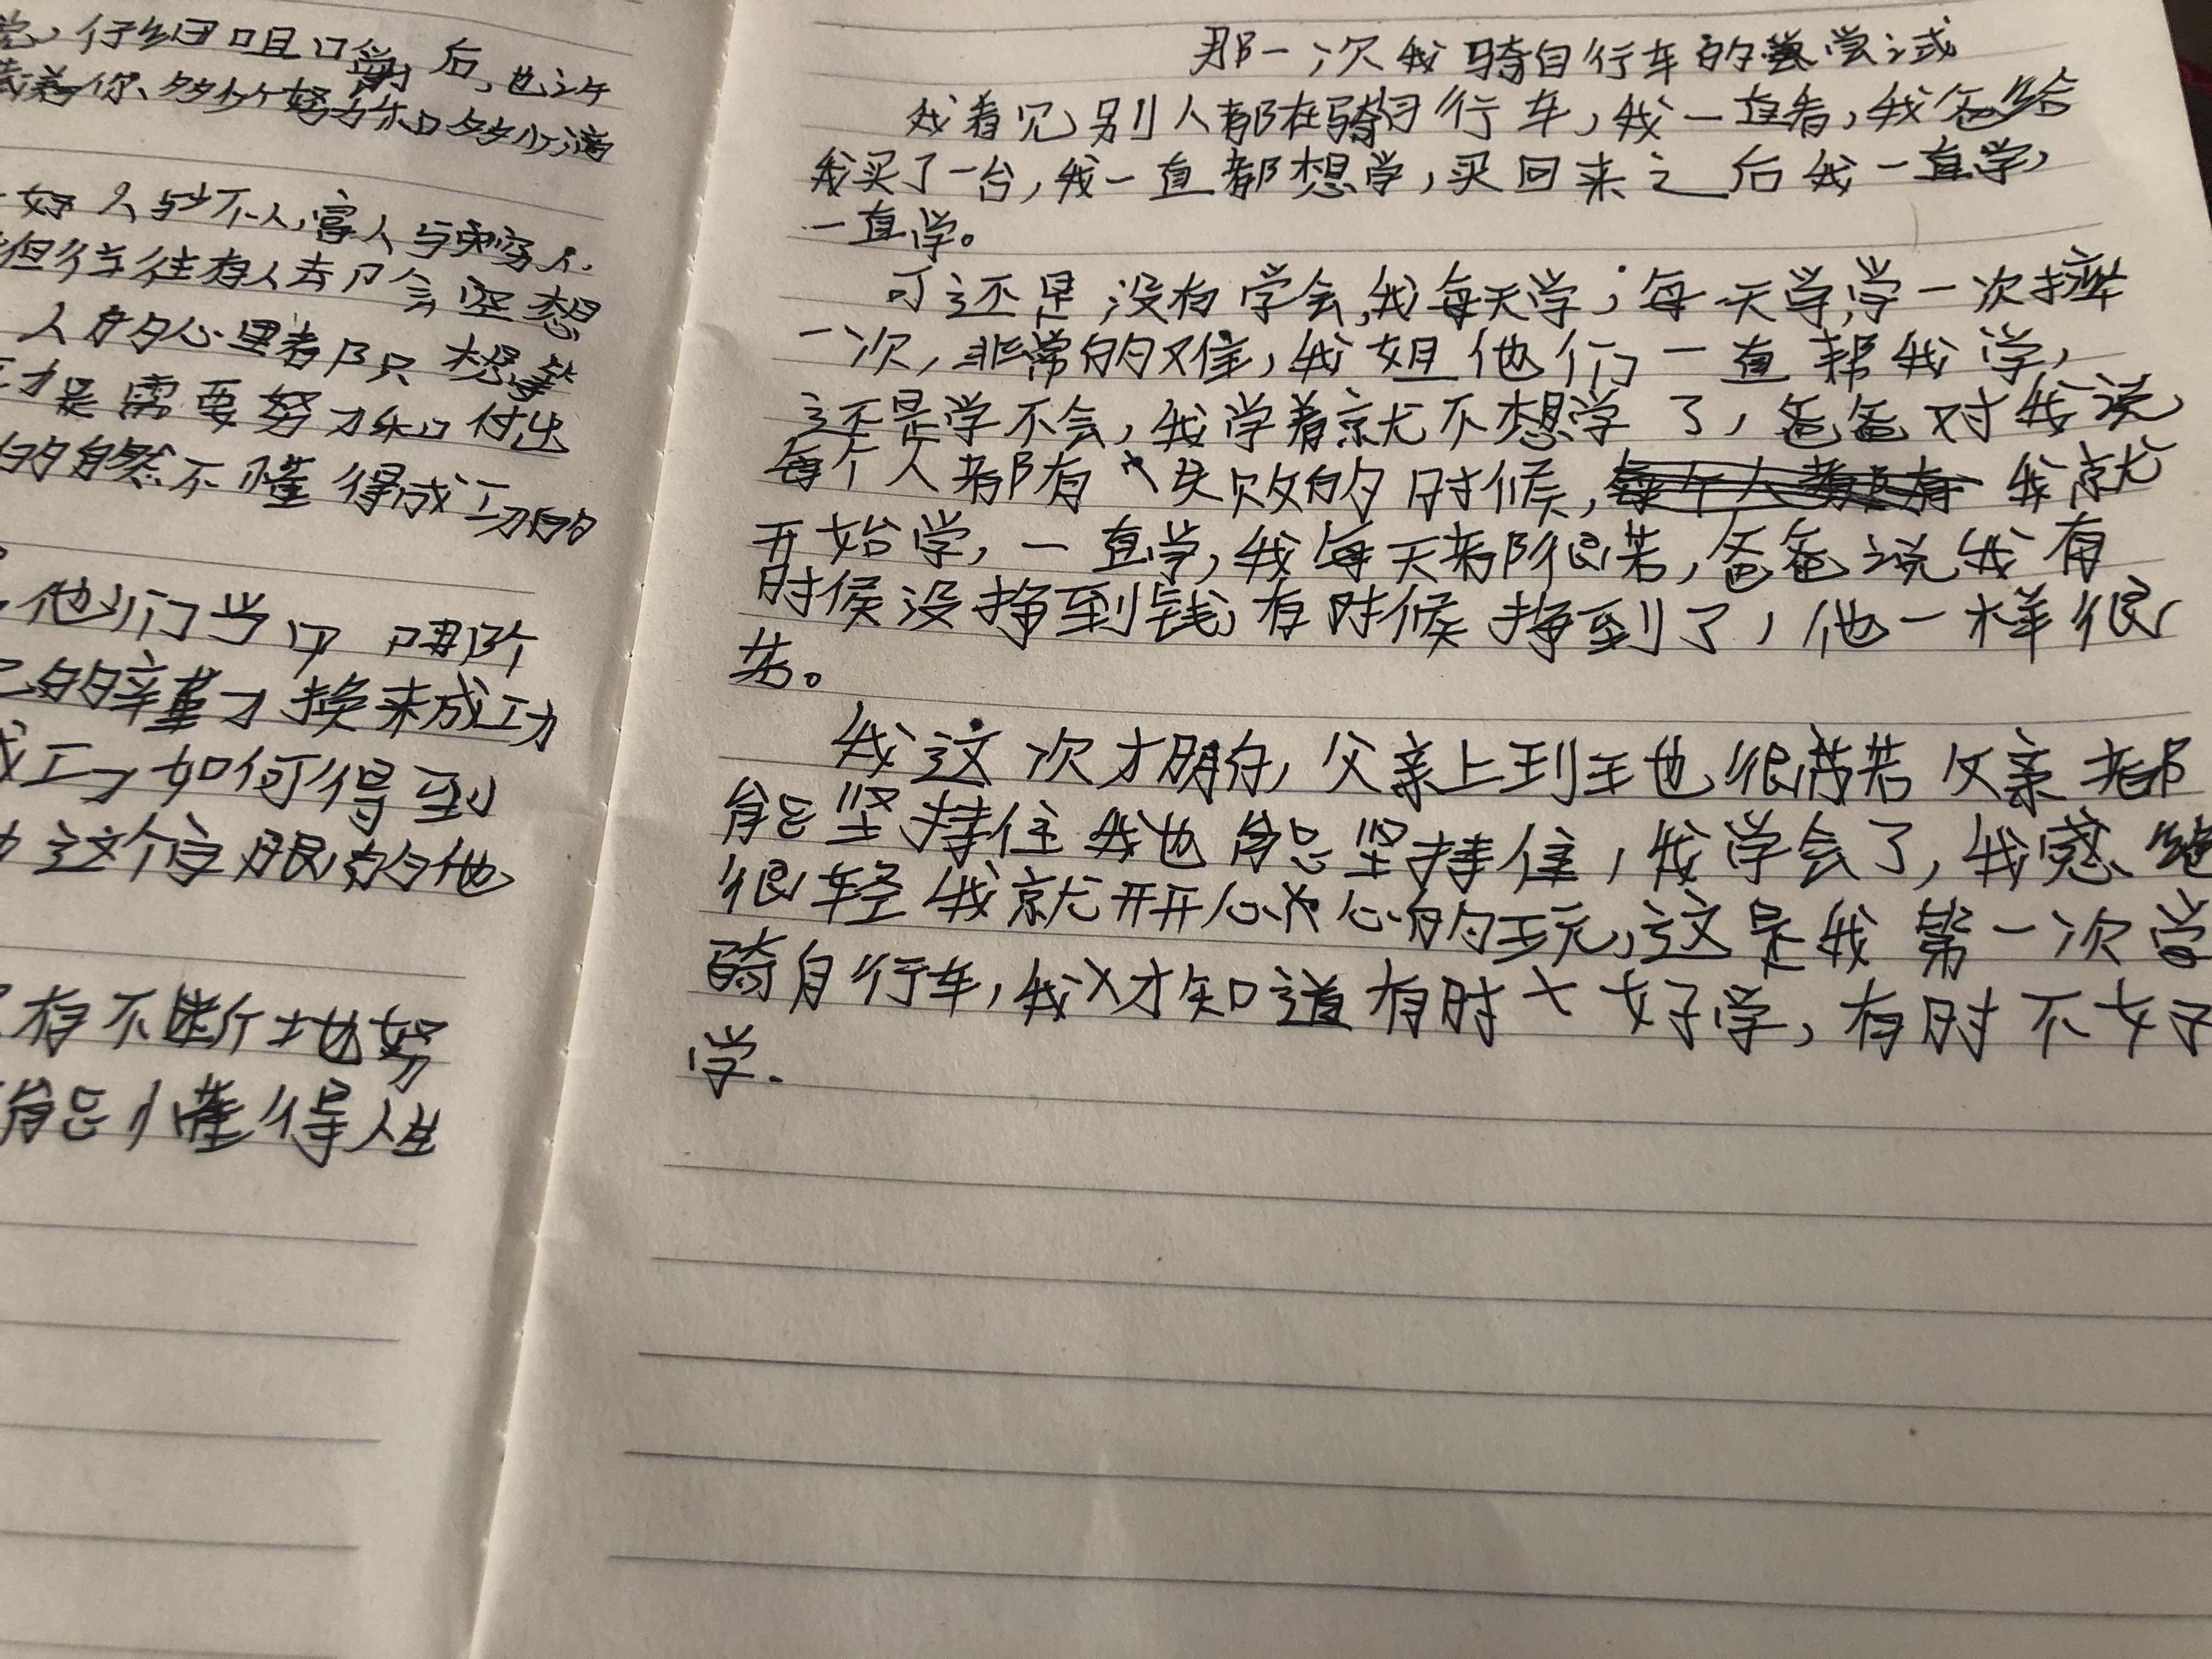 行细咀嚼后,也许
着你、多少个努力和多少滴
好人与坏人,富人与穷人.
但往往有人去只会空想
人有的心里都只想等
功是需要努力和付出
的自然不懂得成功的
他们当中
的辛董才换来成功
成功如何得到
这个字眼的他
有不断地努
能懂得人生
那一次我骑自行车的尝试
我看见别人都在骑自行车,我一直看,我爸给
我买了一台,我一直都想学,买回来之后我一直学,
一直学。
可还是没有学会,我每天学,每天学,学一次摔
一次,非常的难,我姐他们一直帮我学,
还是学不会,我学着就不想学了,爸爸对我说
每个人都有失败的时候,我就
开始学,一直学,我每天都很苦,爸爸说我有
时候没挣到钱,有时候挣到了,他一样很
苦。
我这次才明白,父亲上到王也很苦父亲都
能坚持住我也能坚持住,我学会了,我感绝
很轻我就开开心心的玩,这是我第一次学
骑自行车,我才知道有时好学,有时不好
学.